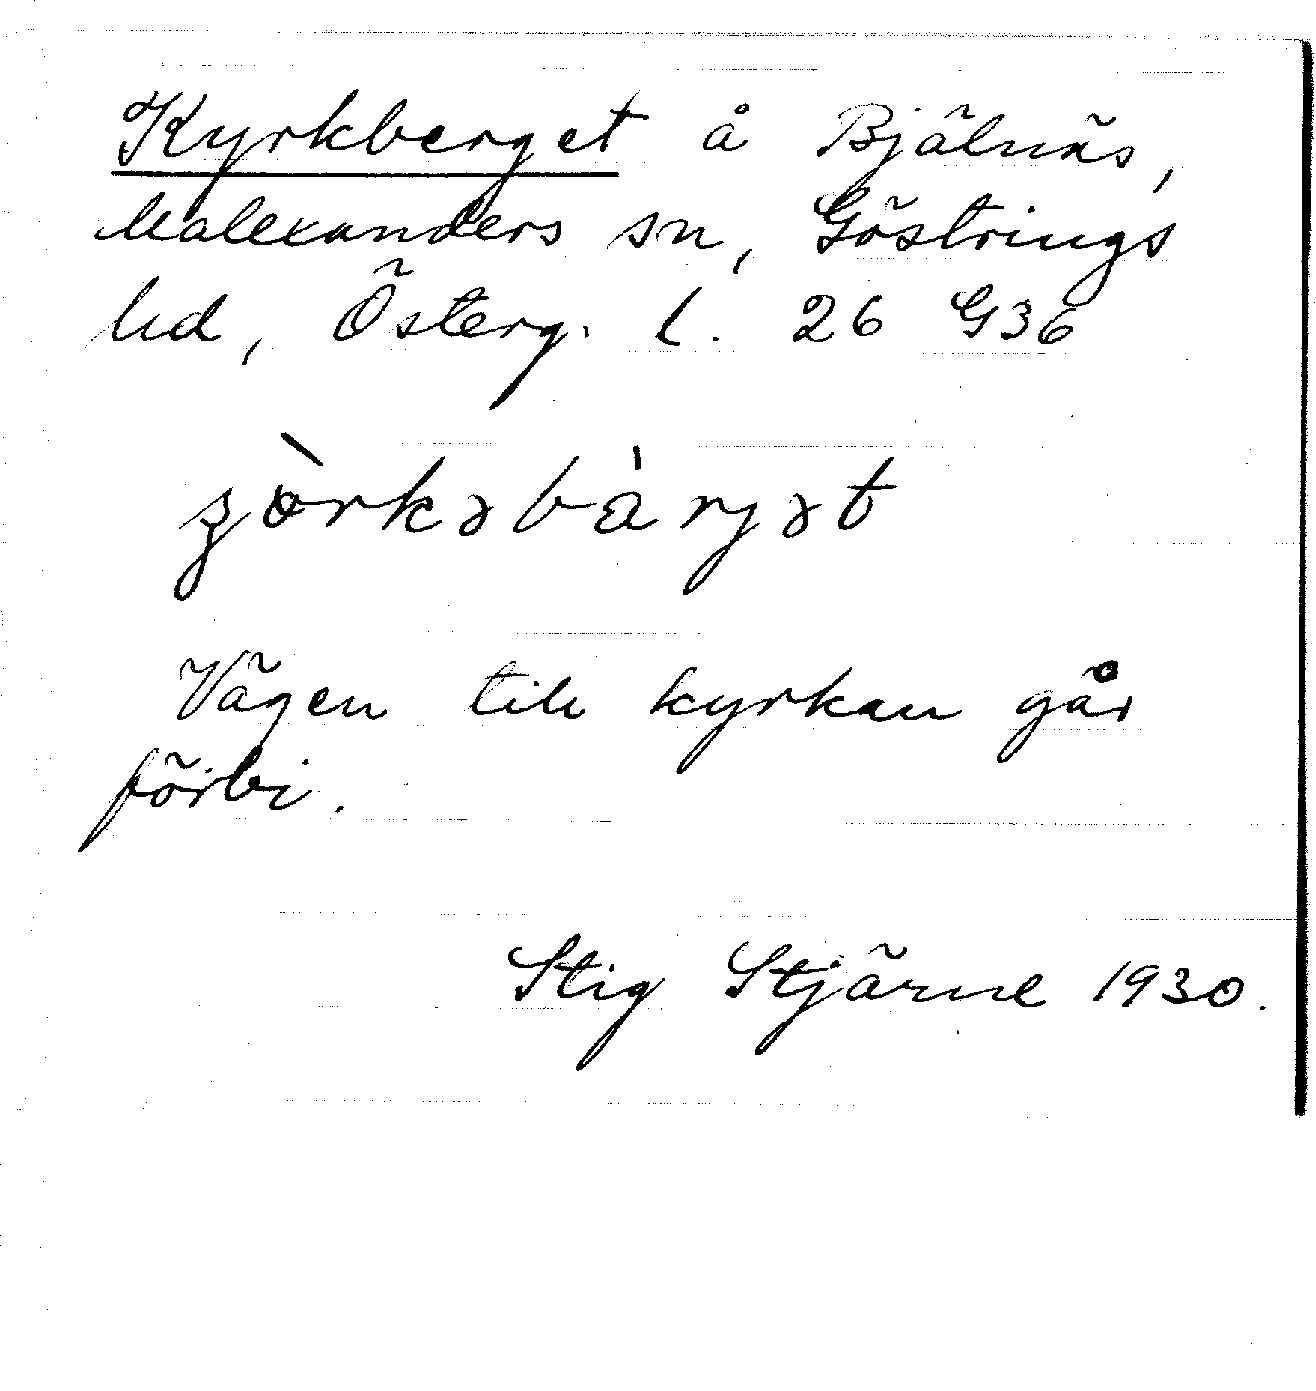 Kyrkberget å Bjälnäs,
Malexanders sn, Göstrings
hd, Österg. l. 26 G36
ʂòrkəbàrjət
Vägen till kyrkan går
förbi.
Stig Stjärne 1930.